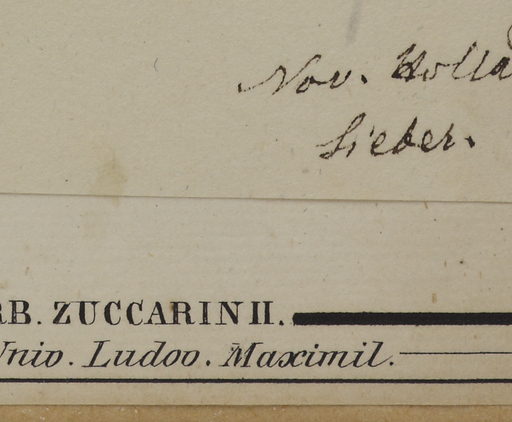 Nov. Holla
Sieber.
RB. ZUCCARINII.
Univ. Ludov. Maximil.